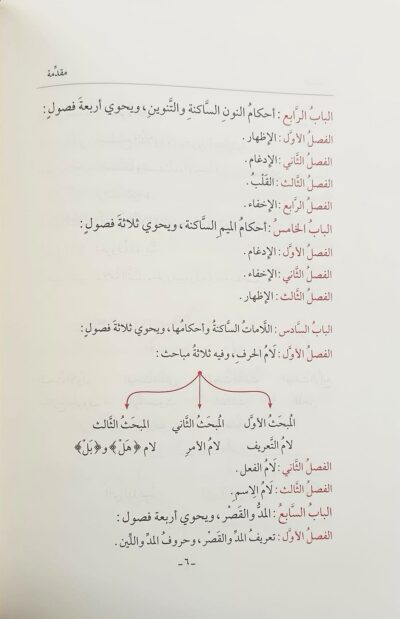 مقدِّمة
البابُ الرَّابع : أحكامُ النون السَّاكنةِ والتَّنوين ، ويحوي أربعةَ فصولٍ :
الفصلُ الأوَّل : الإظهار .
الفصلُ الثَّاني : الإدغام .
الفصلُ الثَّالث : القَلْبُ .
الفصلُ الرَّابع : الإخفاء .
البابُ الخامسُ : أحكامُ الميم السَّاكنة ، ويحوي ثلاثةَ فصولٍ :
الفصلُ الأوَّل : الإدغام .
الفصلُ الثَّاني : الإخفاء .
الفصلُ الثَّالث : الإظهار .
البابُ السَّادس : اللَّاماتُ السَّاكنةُ وأحكامُها ، ويحوي ثلاثةَ فصولٍ :
الفصلُ الأوَّل : لَامُ الحرفِ ، وفيه ثلاثةُ مباحث :
المبحَثُ الأوَّل المبحَثُ الثَّاني المبحَثُ الثَّالث
لامُ التَّعريف لامُ الأمرِ لام ﴿هَلْ﴾ و﴿بَلْ﴾
الفصلُ الثَّاني : لَامُ الفعل .
الفصلُ الثَّالث : لَامُ الِاسمِ .
البابُ السَّابعُ : المدُّ والقَصْر ، ويحوي أربعة فصول :
الفصلُ الأوَّل : تعريفُ المدِّ والقَصْر ، وحروفُ المدِّ واللِّين .
-٦-